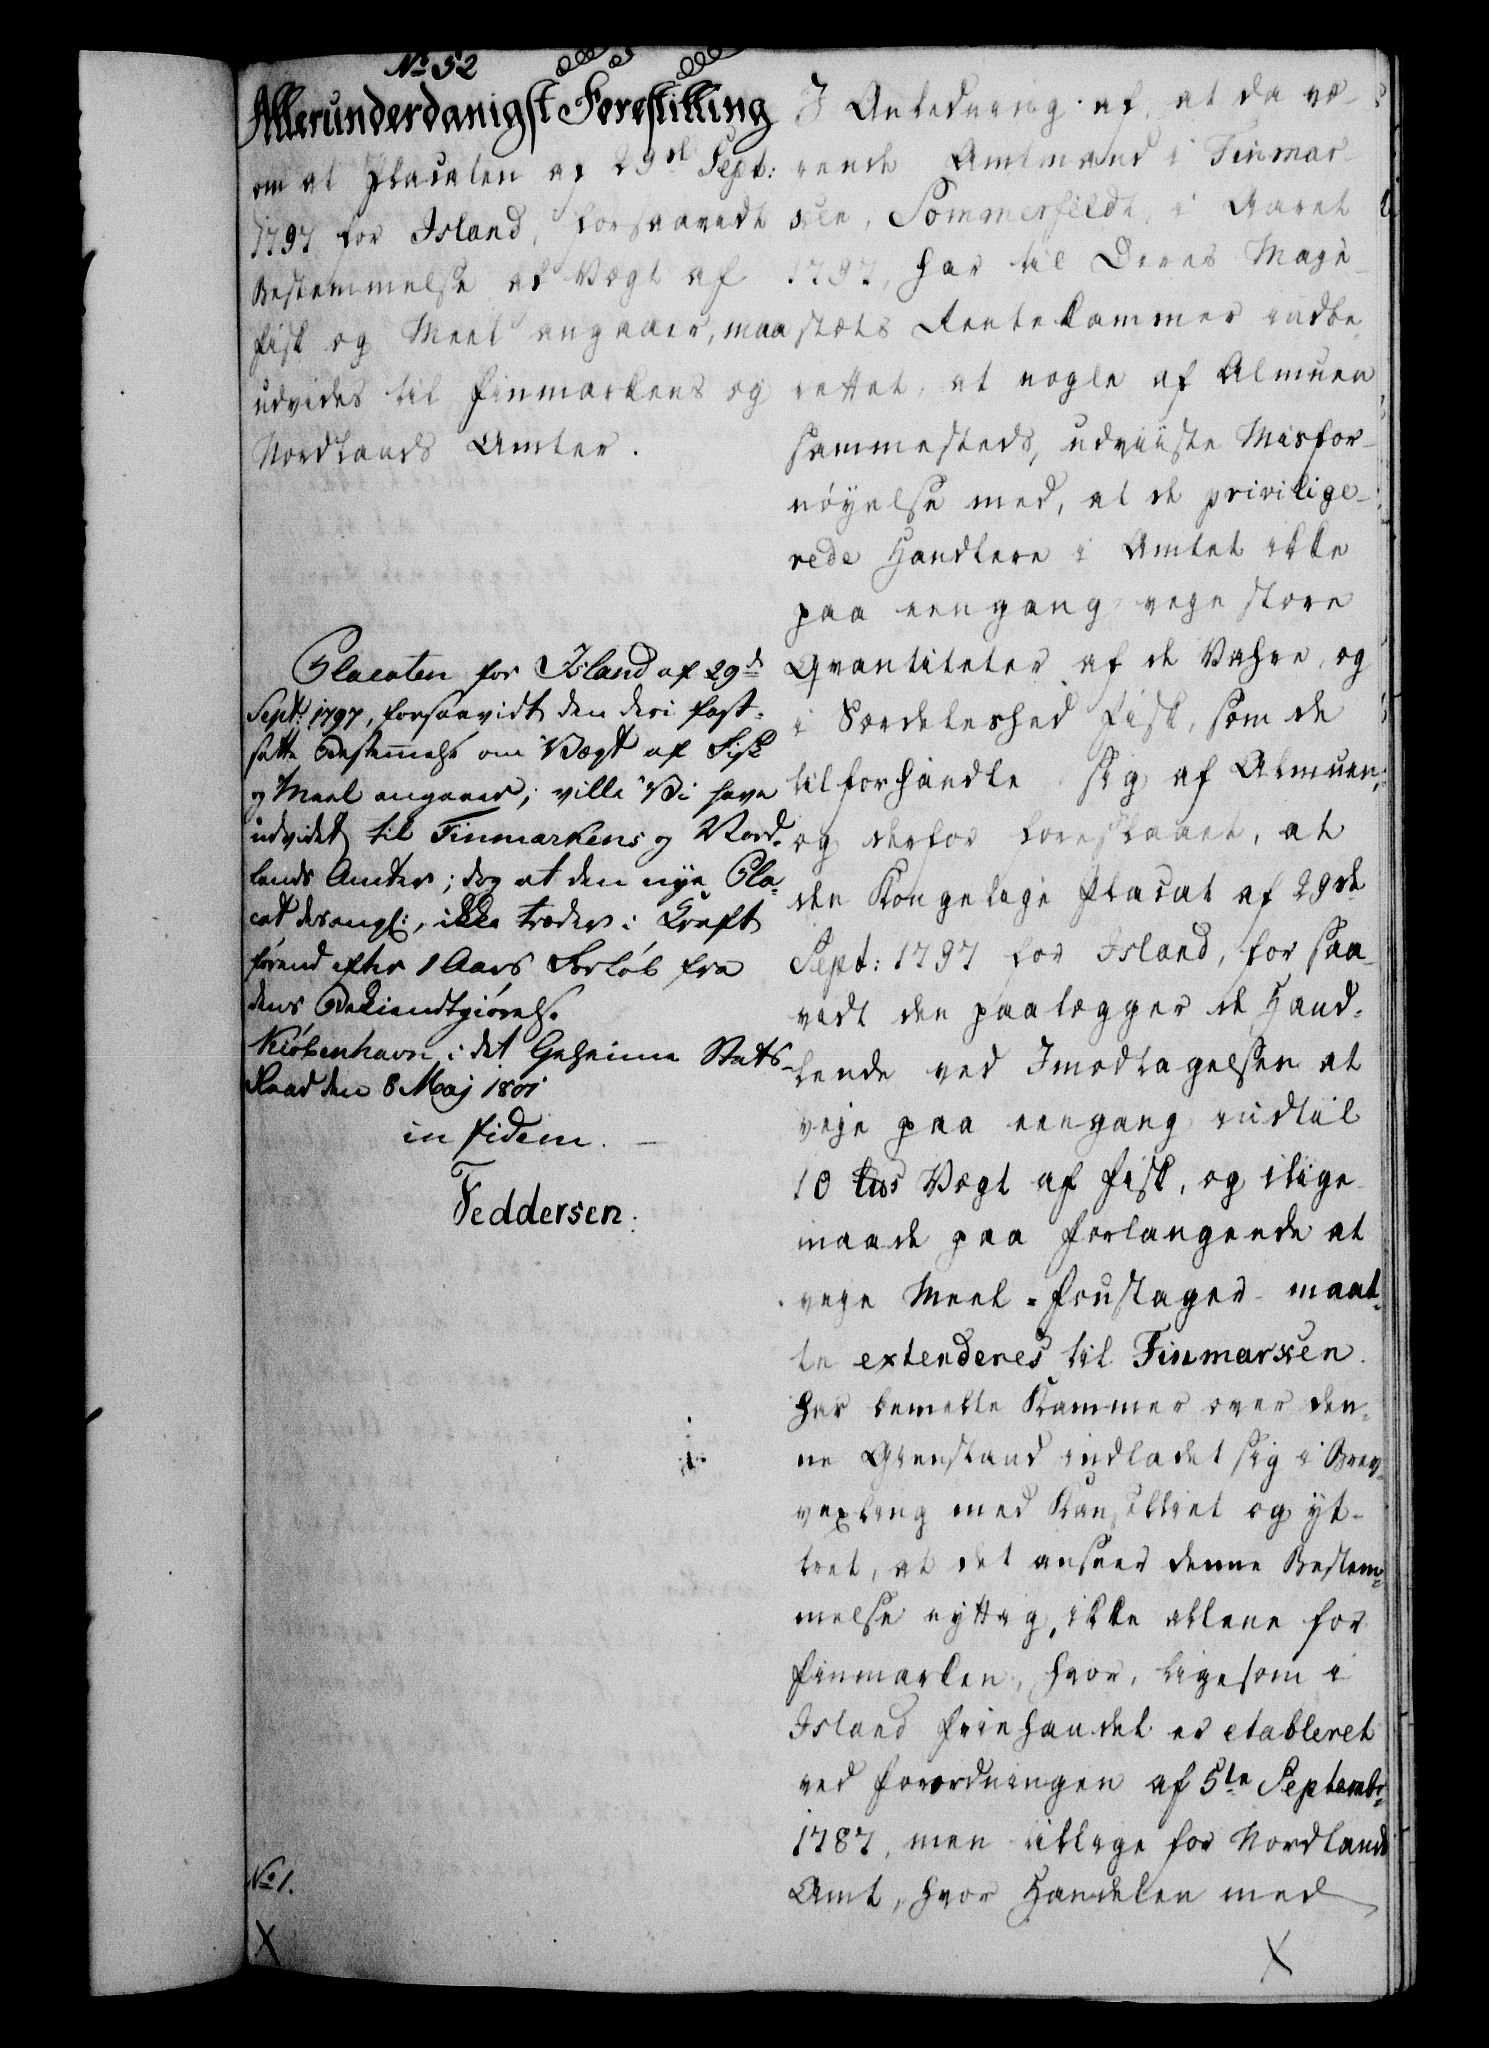 No 52
Allerunderdanigst Forestilling
om at Placaten af 29de Sept:
1797 for Island, forsaavidt
Bestemmelse af Vægt af
Fisk og Meel angaaer, maa
udvides til Finmarkens og
Nordlands Amter.
Placaten for Island af 29d
Sept: 1797, forsaavidt den deri fast-
satte Bestemmelse om Vægt af Fisk
og Meel angaaer, ville Vi have
udvidet til Finmarkens og Nord-
lands Amter; dog at den nye Pla-
cat desangl:, ikke træder i Kraft
førend efter 1 Aars Forløb fra
dens Bekiendtgiørelse.
Kiøbenhavn i det Geheime Stats-
Raad den 8 Maj 1801
in fidem.
Feddersen.
No 1.
X
I Anledning af, at da væ-
rende Amtmand i Finmar-
ken, Sommerfeldt, i Aaret
1797, har til Deres Maje-
stæts Rentekammer indbe-
rettet, at nogle af Almuen
sammesteds, udviiste Misfor-
nøyelse med, at de privilige-
rede Handlere i Amtet ikke
paa eengang veje store
Qvantiteter af de Vahre, og
i Særdeleshed Fisk, som de
tilforhandle sig af Almuen,
og derfor foreslaaet, at
den Kongelige Placat af 29de
Sept: 1797 for Island, for saa-
vidt den paalægger de Hand-
lende ved Imodtagelsen at
veje paa eengang indtil
10 Lps Vægt af Fisk, og ilige-
maade paa Forlangende at
veje Meel-Foustager maat-
te extenderes til Finmarken.
har bemelte Kammer over den-
ne Gienstand indladet sig i Brev-
vexling med Kancelliet og yt-
tret, at det anseer denne Bestem-
melse nyttig, ikke allene for
Finmarken, hvor, ligesom i
Island Friehandel er etableret
ved Forordningen af 5te Septembr
1787, men tillige for Nordlands
Amt, hvor Handelen med
X